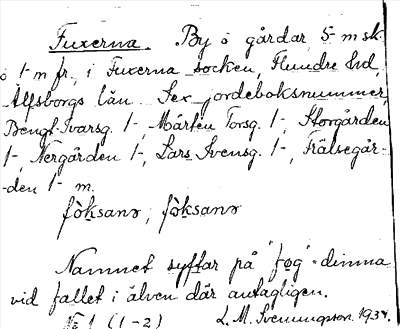 Fuxerna. By å gårdar 5 m sk.
o 1 m fr, i Fuxerna socken, Flundre hd,
Älfsborgs län. Sex jordeboksnummer,
Bengt Ivarsg. 1-, Mårten Torsg. 1-, Storgården
1-, Nergården 1-, Lars Svensg. 1-, Frälsegår-
-den 1- m.
fòksanɘ, fòksanɘ
Namnet syftar på "føg"-dimma
vid fallet i älven där antagligen.
No 1 (1-2) L. M. Svenungsson 1934.